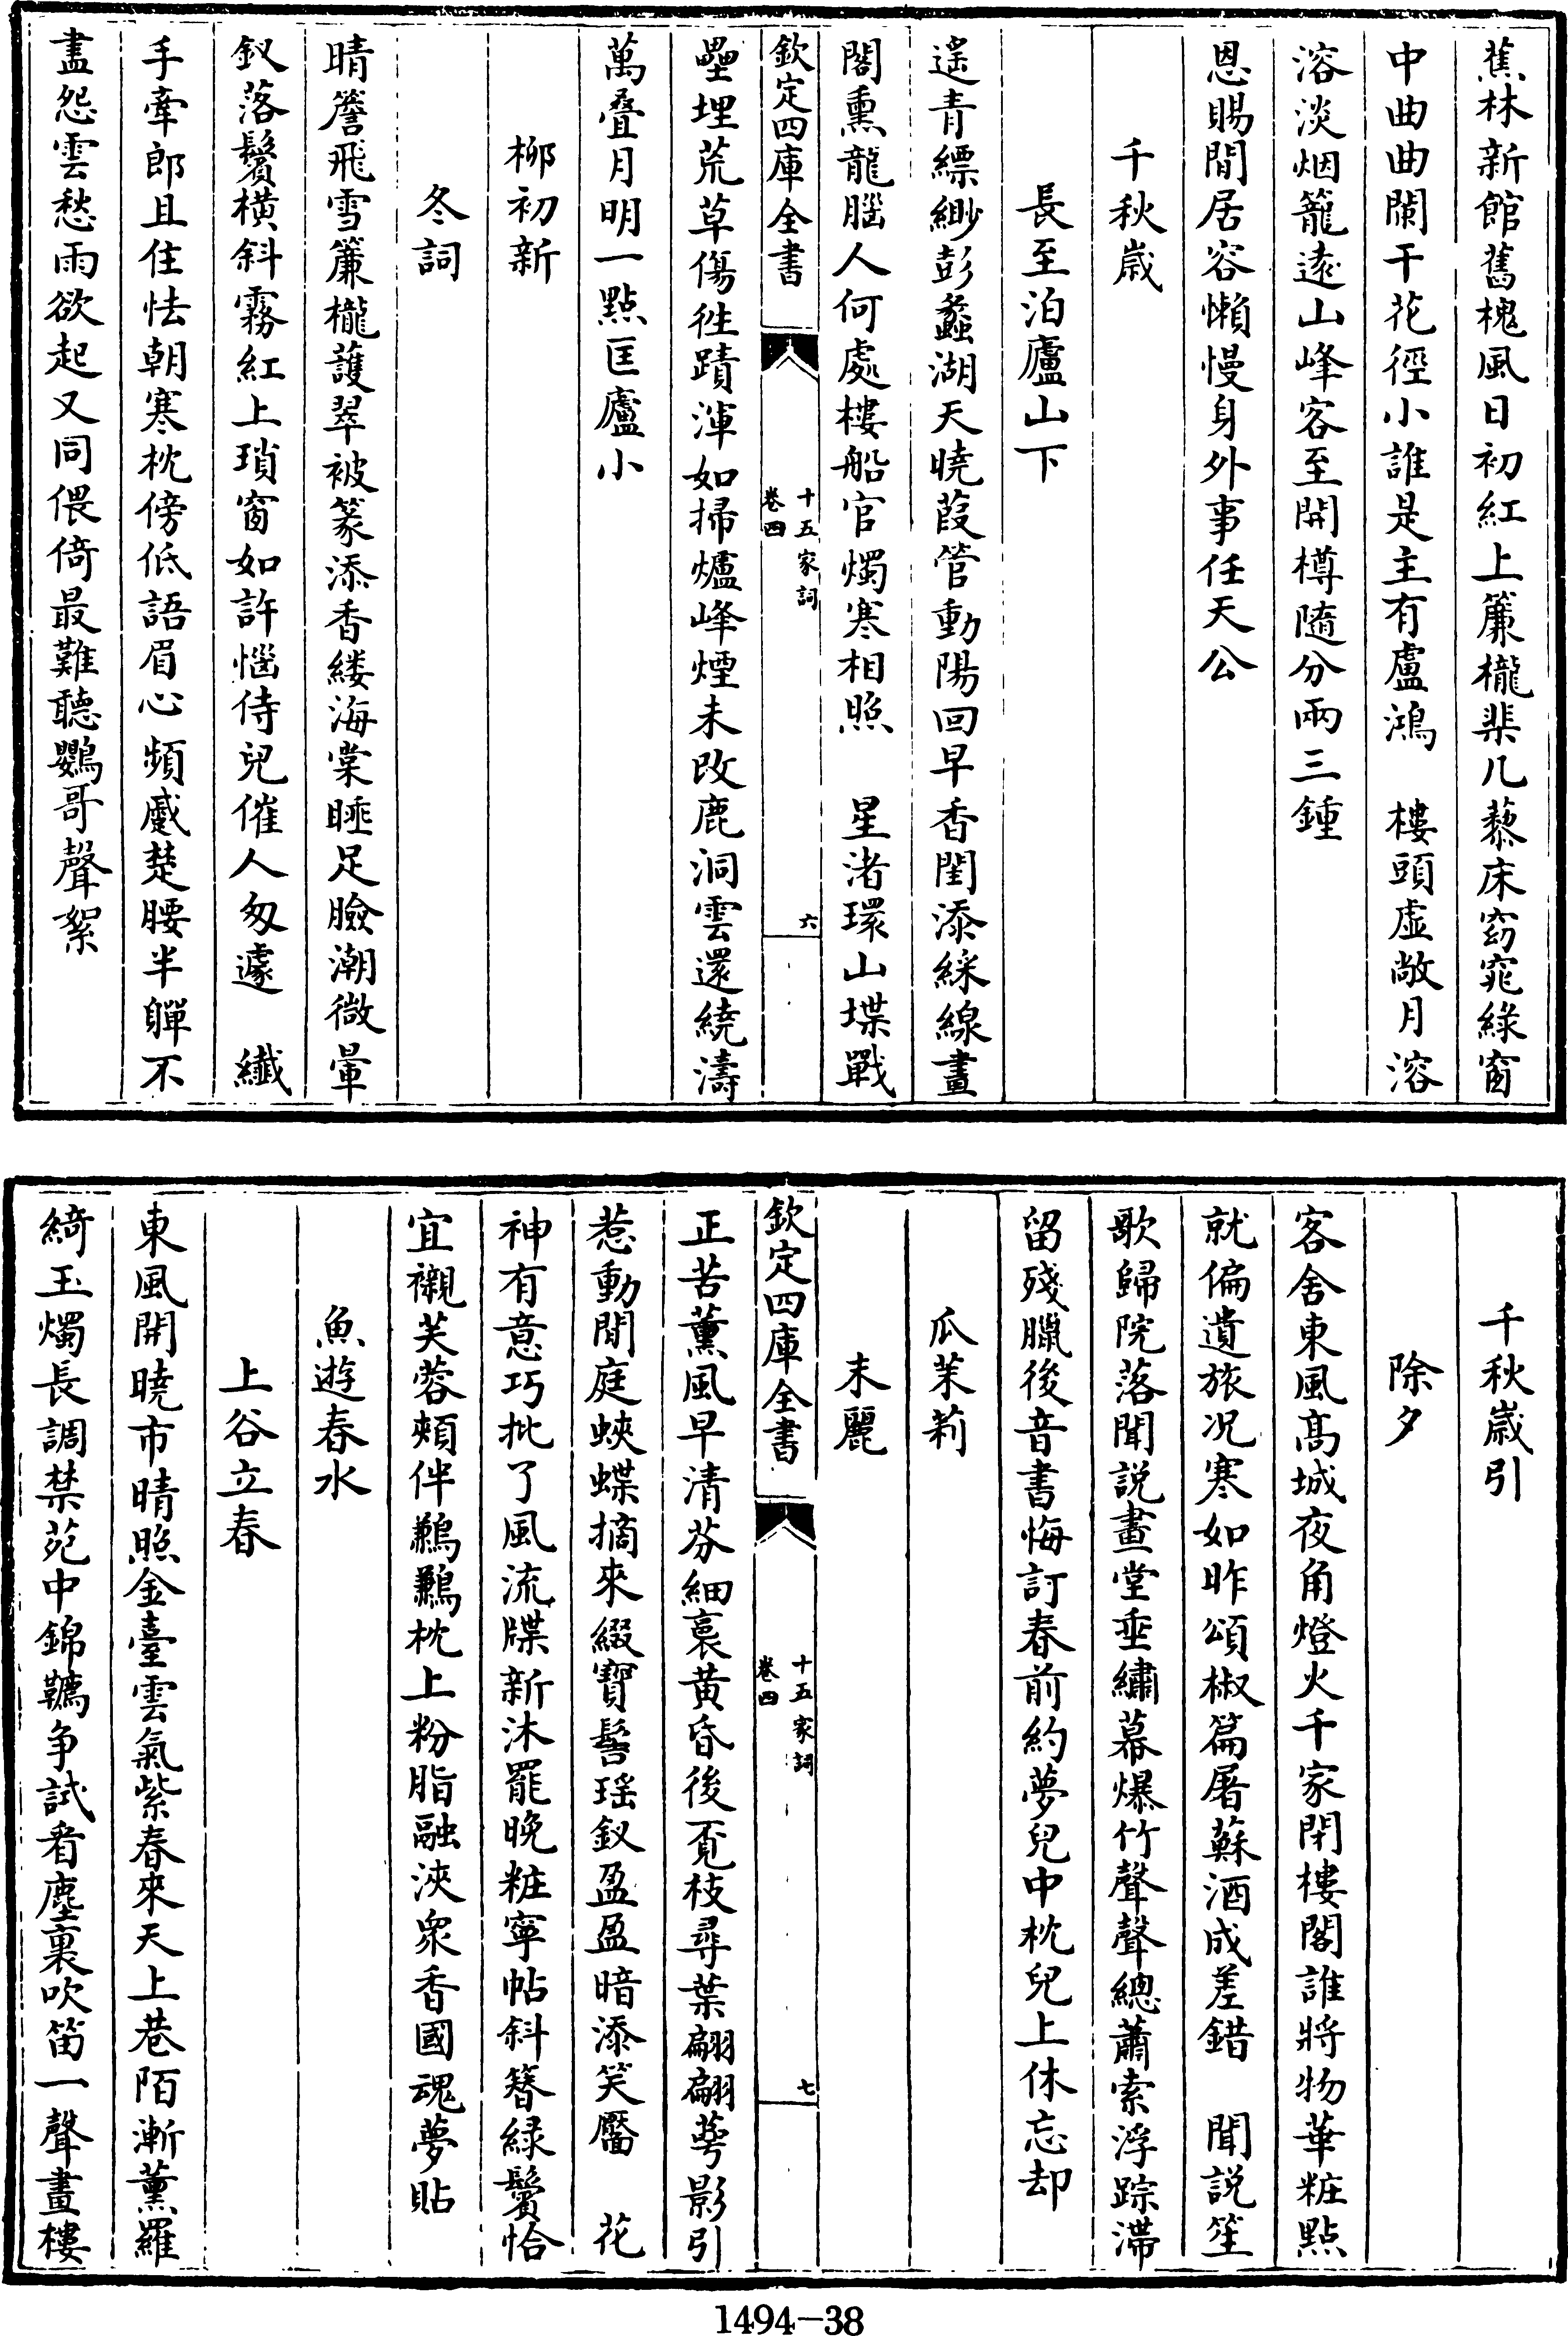 蕉林新館舊槐風日初紅上簾櫳棐几藜床窈窕緑窗
中曲曲闌干花徑小誰是主有盧鴻　樓頭虛敞月溶
溶淡烟籠逺山峰客至開樽隨分兩三鍾
恩賜閒居容懶慢身外事任天公
千秋嵗
長至泊廬山下
遥青縹緲彭蠡湖天曉葭管動陽回早香閨添綵線畫
閣熏龍腦人何處樓船官燭寒相照　星渚環山堞戰
欽定四庫全書
十五家詞
卷四
六
壘埋荒草傷徃蹟渾如掃爐峰煙未改鹿洞雲還繞濤
萬疊月明一點匡廬小
柳初新
冬詞
晴簷飛雪簾櫳䕶翠被篆添香縷海棠睡足臉潮微暈
釵落鬢橫斜霧紅上瑣窗如許惱侍兒催人匆遽　纖
手牽郎且住怯朝寒枕傍低語眉心頻蹙楚腰半嚲不
盡怨雲愁雨欲起又同偎倚最難聽鸚哥聲絮
千秋嵗引
除夕
客舍東風髙城夜角燈火千家閉樓閣誰將物華粧點
就偏遺旅况寒如昨頌椒篇屠蘇酒成差錯　聞説笙
歌歸院落聞説畫堂垂繡幕爆竹聲聲總蕭索浮踪滯
留殘臘後音書悔訂春前約夢兒中枕兒上休忘却
瓜茉莉
末麗
欽定四庫全書
十五家詞
卷四
七
正苦薰風早清芬細裛黄昏後覔枝尋葉翩翩蕚影引
惹動閒庭蛺蝶摘來綴寶髻瑶釵盈盈暗添笑靨　花
神有意巧批了風流牒新沐罷晚粧寧帖斜簪緑鬢恰
宜襯芙蓉頰伴鶼鶼枕上粉脂融浹衆香國魂夢貼
魚遊春水
上谷立春
東風開曉市晴照金臺雲氣紫春來天上巷陌漸薰羅
綺玉燭長調禁苑中錦韉争試看塵裏吹笛一聲畫樓
1494-38